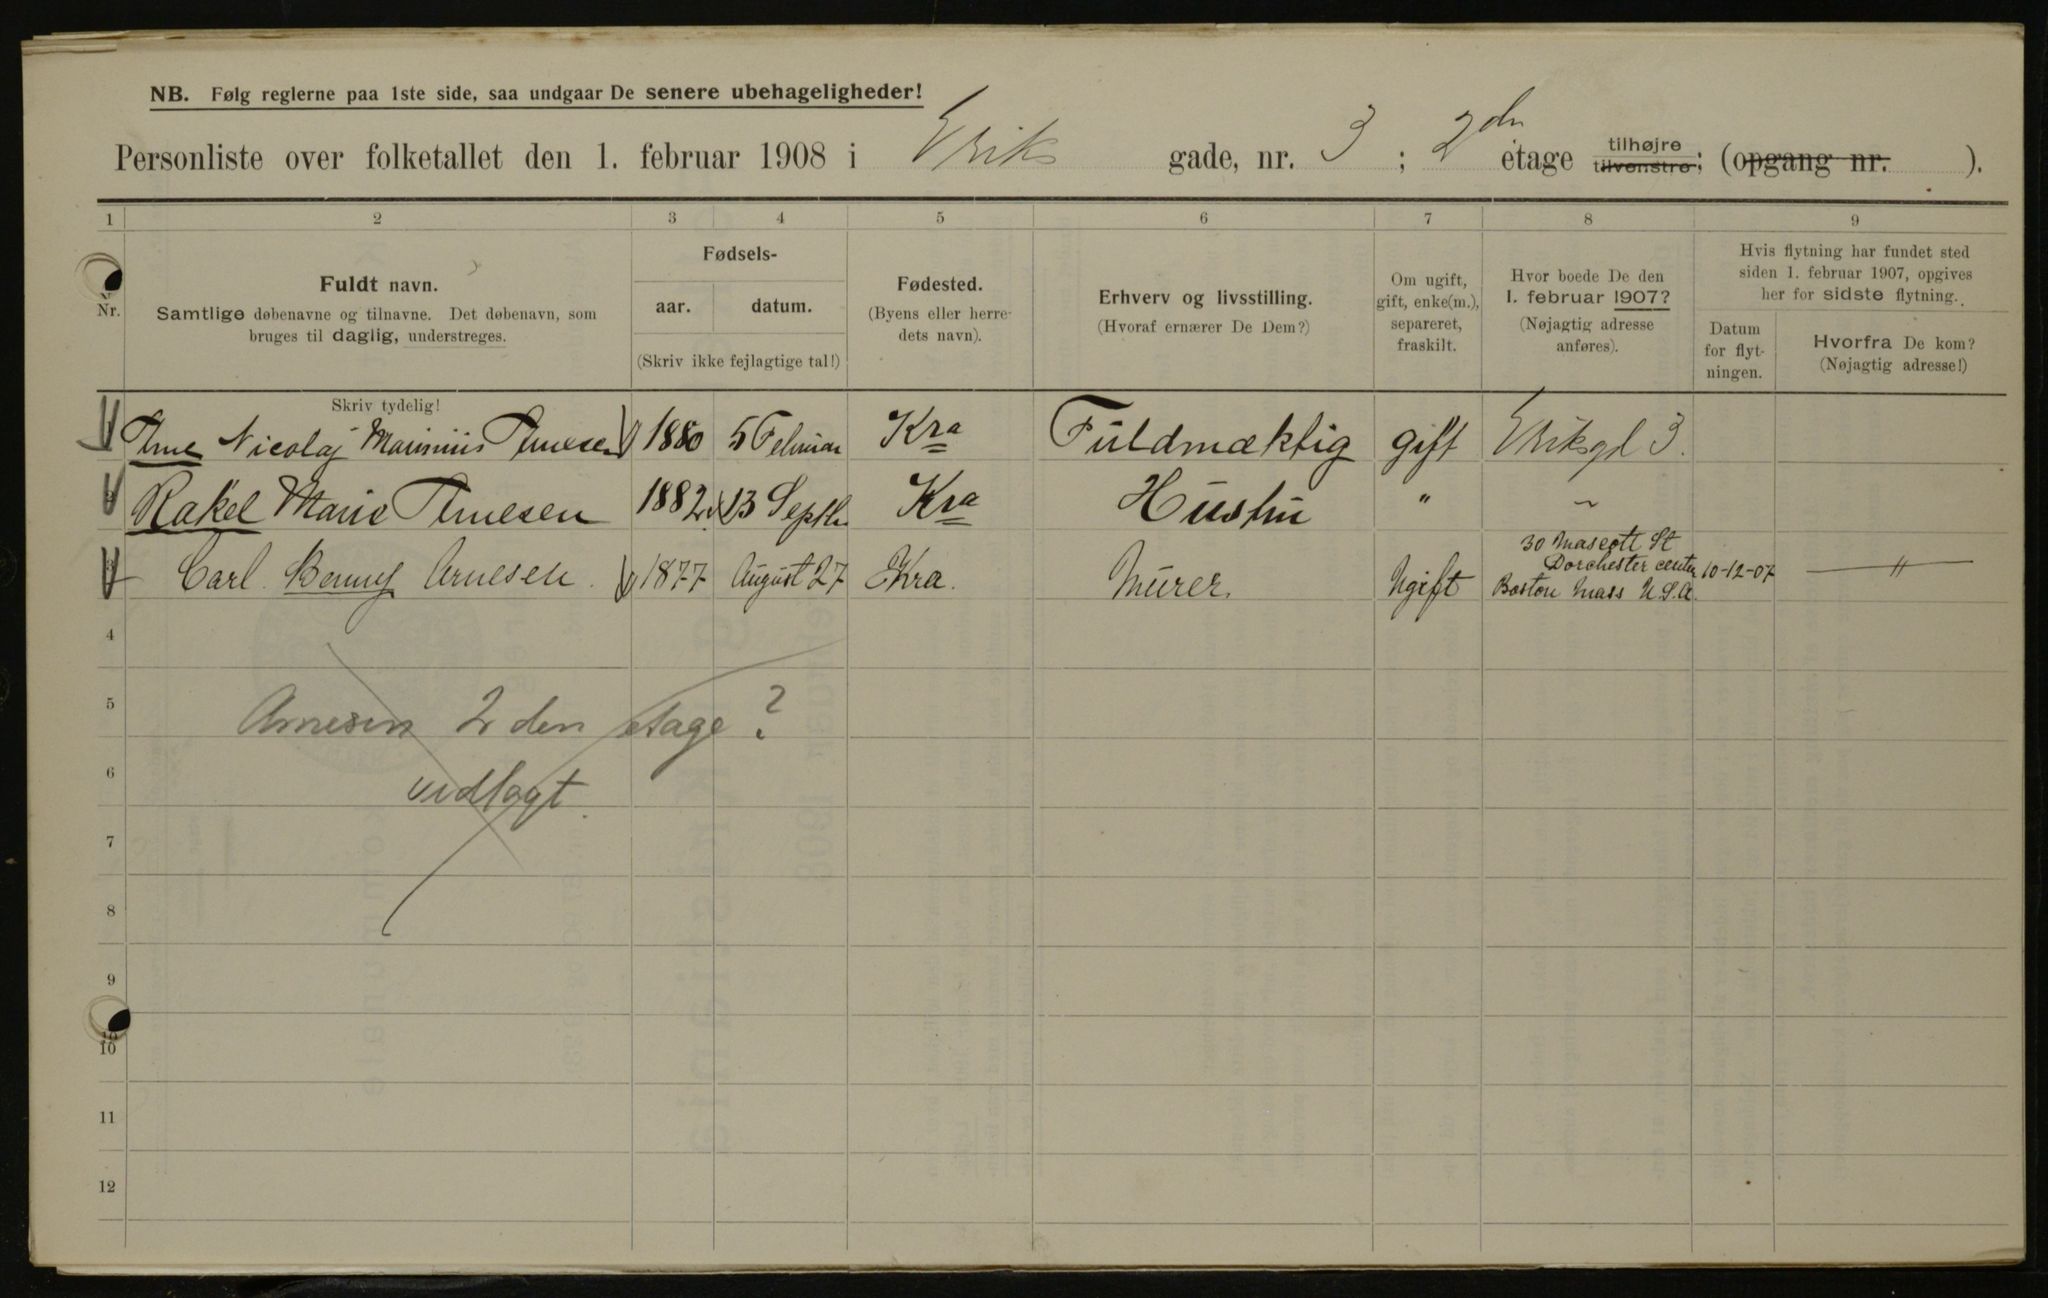 NB. Følg reglerne paa 1ste side, saa undgaar De senere ubehageligheder!
Personliste over folketallet den 1. februar 1908 i Eriks gade, nr. 3 ; 2den etage tilhøjre tilvenstre; (opgang nr. ).
1 2 3 4 5 6 7 8 9
Nr.
Fuldt navn.
Samtlige døbenavne og tilnavne. Det døbenavn, som
bruges til daglig, understreges.
Skriv tydelig!
Fødsels-
aar. datum.
(Skriv ikke fejlagtige tal!)
Fødested.
(Byens eller herre-
dets navn).
Erhverv og livsstilling.
(Hvoraf ernærer De Dem?)
Om ugift,
gift, enke(m.),
separeret,
fraskilt.
Hvor boede De den
1. februar 1907?
(Nøjagtig adresse
anføres).
Hvis flytning har fundet sted
siden 1. februar 1907, opgives
her for sidste flytning.
Datum
for flyt-
ningen.
Hvorfra De kom?
(Nøjagtig adresse!)
Arne Nicolaj Marinius Arnesen 1880 5 Februar Kra Fuldmæktig gift Eriksgd 3.
Rakel Marie Arnesen 1882 13 Septbr Kra Hustru " ~
Carl Benny Arnesen. 1877 August 27 Kra. Murer. Ugift 30 Mascott St
Dorchester center
Boston Mass U.S.A. 10-12-07 — " —
4
5 Arnesen 2 den etage?
6 vedlagt.
7
8
9
10
10
11
12